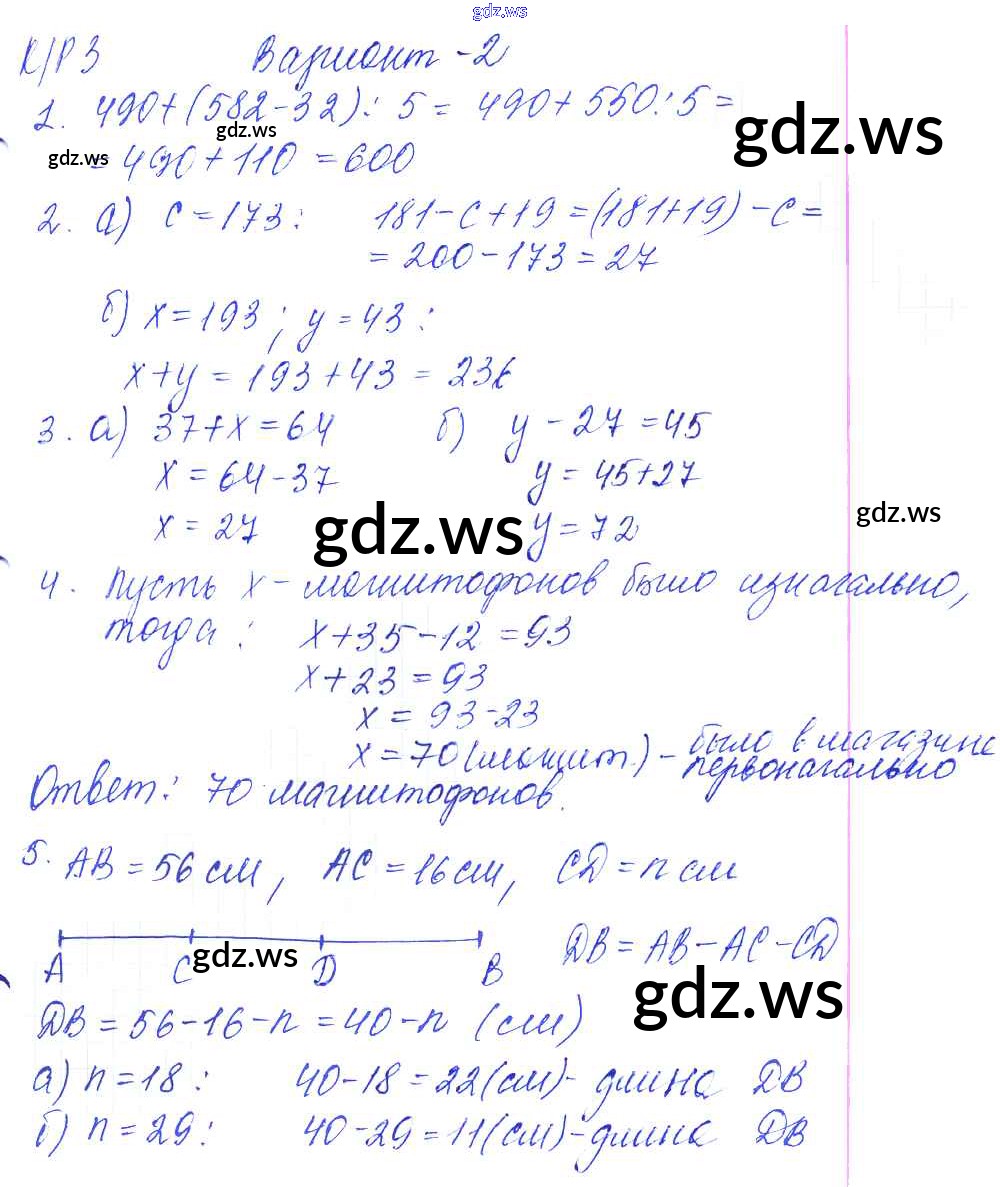 gdz.ws
К/Р 3 Вариант - 2
1. 490+(582-32): 5 = 490+550:5 =
gdz.ws
gdz.ws
gdz.ws = 490+110 = 600
2. а) с = 173: 181-с+19 = (181+19)-с =
= 200-173 = 27
б) х = 193; у = 43:
х+у = 193+43 = 236
3. а) 37+х = 64 б) у - 27 = 45
х = 64-37 у = 45+27
х = 27 gdz.ws у = 72 gdz.ws
4. Пусть х - магнитофонов было изначально,
тогда: х+35-12 = 93
х+23 = 93
х = 93-23
х = 70 (магнит.) - было в магазине
первоначально
Ответ: 70 магнитофонов.
5. АВ = 56 см, АС = 16 см, СD = n см
А С gdz.ws D В DB = АВ-АС-СD
gdz.ws
DB = 56-16-n = 40-n (см)
а) n = 18: 40-18 = 22(см)- длина DB
б) n = 29: 40-29 = 11(см)-длина DB